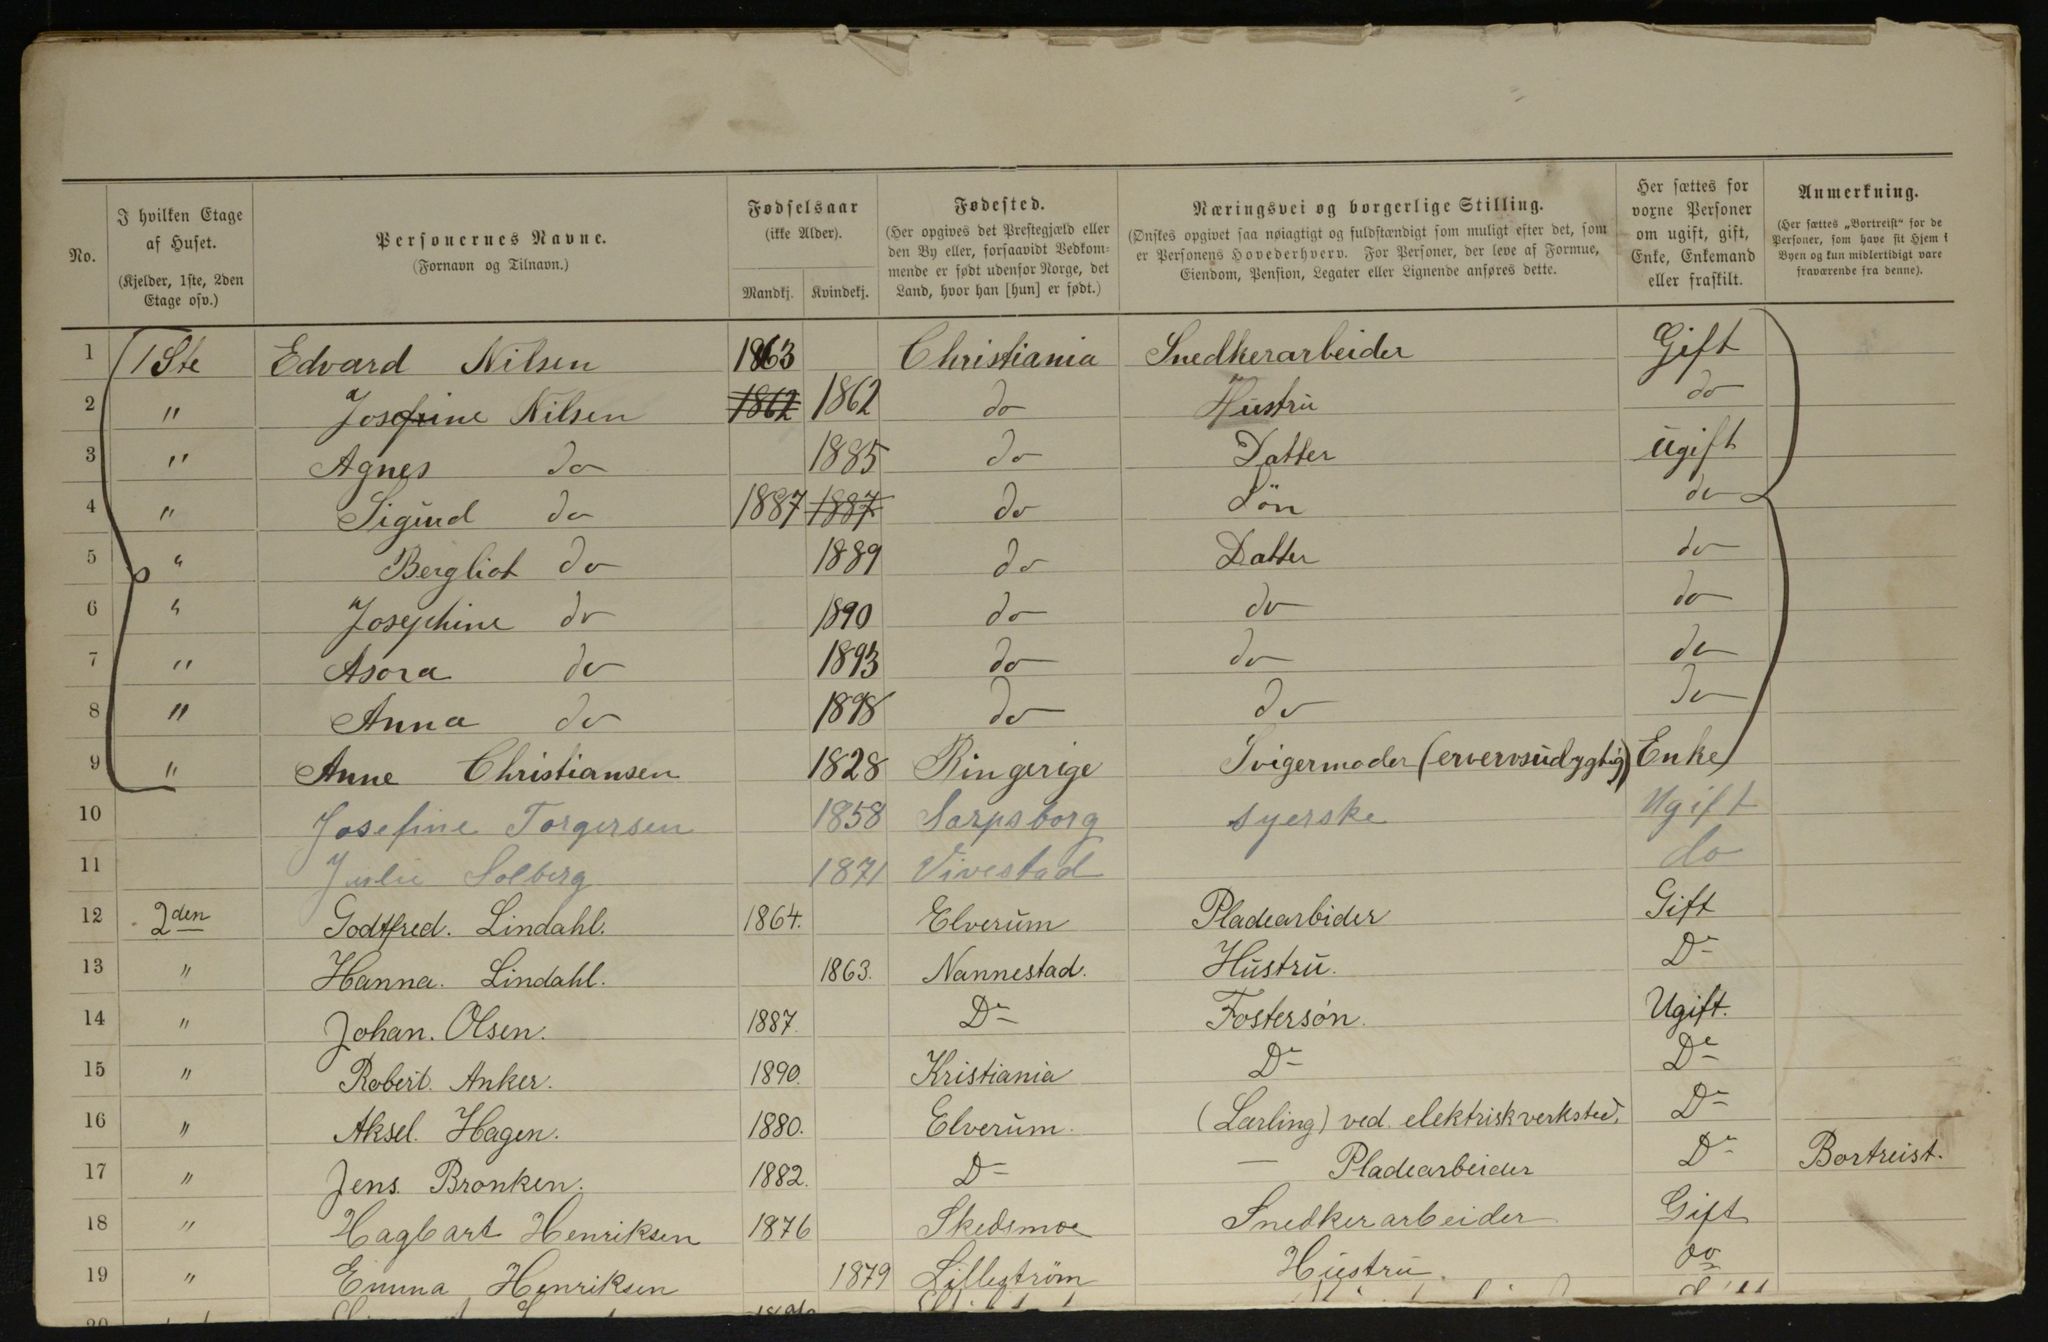 No.
I hvilken Etage af Huset.
(Kjelder, 1ste, 2den Etage osv.)
Personernes Navne.
(Fornavn og Tilnavn.)
Fødselsaar
(ikke Alder).
Mandkj. Kvindekj.
Fødested.
(Her opgives det Prestegjæld eller den By eller, forsaavidt Vedkommende er født udenfor Norge, det Land, hvor han [hun] er født.)
Næringsvei og borgerlige Stilling.
(Ønskes opgivet saa nøiagtigt og fuldstændigt som muligt efter det, som er Personens Hovederhverv. For Personer, der leve af Formue, Eiendom, Pension, Legater eller Lignende anføres dette.
Her sættes for voxne Personer om ugift, gift, Enke, Enkemand eller fraskilt.
Anmerkning.
(Her sættes „Bortreist“ for de Personer, som have sit Hjem i Byen og kun midlertidigt vare fraværende fra denne).
1 1Ste Edvard Nilsen 1863 Christiania Snedkerarbeider Gift
2 " Josefine Nilsen 1862 1862 do Hustru do
3 " Agnes do 1885 do Datter ugift
4 " Sigurd do 1887 1887 do Søn do
5 " Bergliot do 1889 do Datter do
6 " Josephine do 1890 do do do
7 " Asora do 1893 do do do
8 " Anna do 1898 do do do
9 " Anne Christiansen 1828 Ringerige Svigermoder (ervervsudygtig) Enke
10 Josefine Torgersen 1858 Sarpsborg syerske Ugift
11 Julie Solberg 1871 Vivestad do
12 2den Godtfred. Lindahl. 1864. Elverum Pladearbider Gift
13 " Hanna. Lindahl. 1863. Nannestad. Hustru. Do
14 " Johan. Olsen. 1887. Do Fostersøn. Ugift.
15 " Robert. Anker. 1890. Kristiania Do Do
16 " Aksel. Hagen. 1880. Elverum. (Lærling) ved. elektriskverksted. Do
17 " Jens. Bronken. 1882. Do — Pladearbeider Do Bortreist.
18 " Hagbart Henriksen 1876 Skedsmoe Snedkerarbeider Gift
19 " Emma Henriksen 1879 Lillestrøm Hustru. do
20